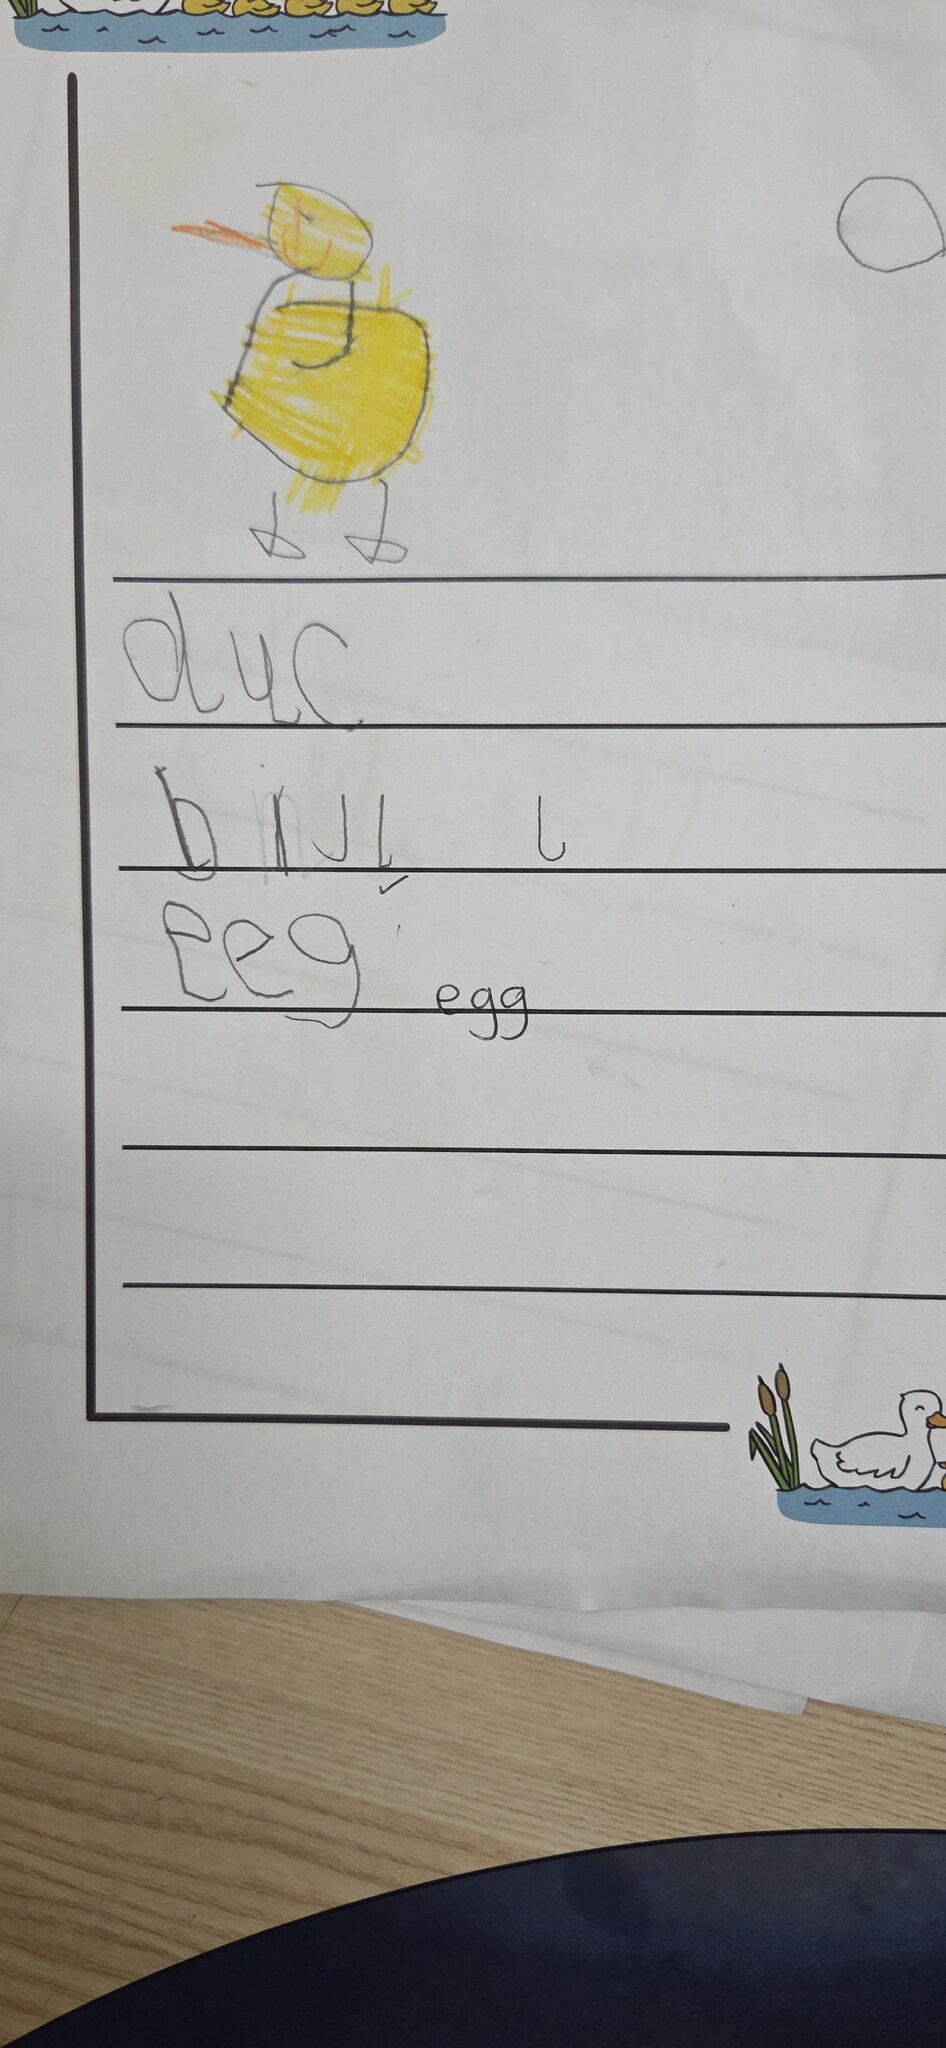 duc
bill l
eeg egg